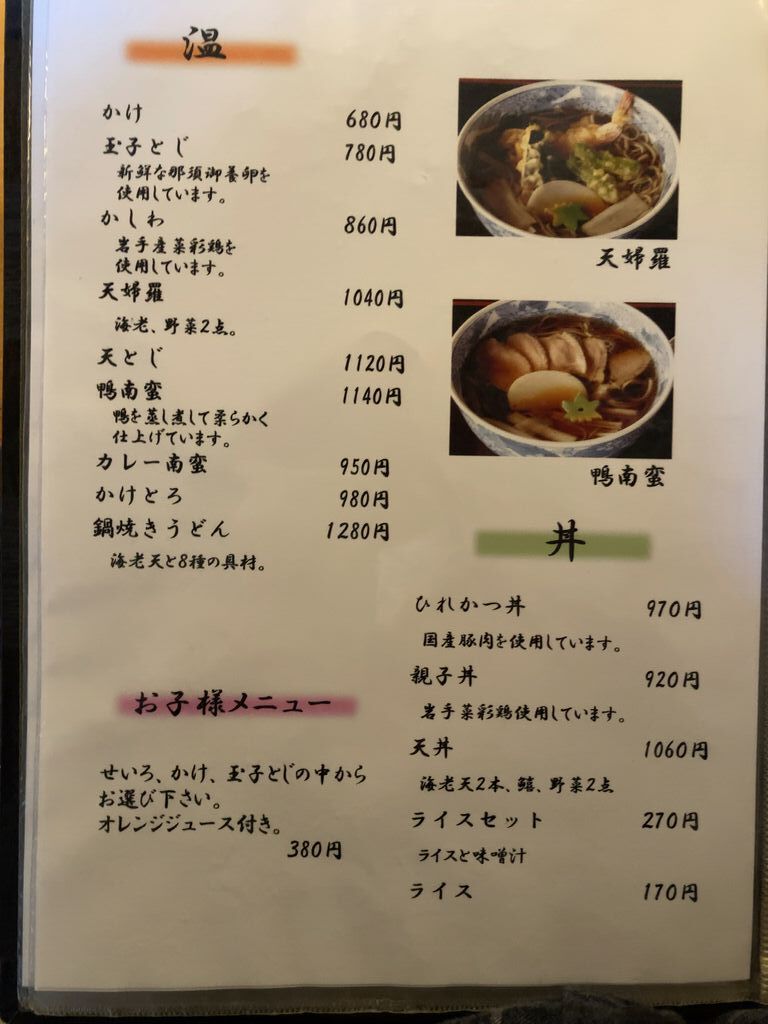 温
かけ 680円
玉子とじ 780円
新鮮な那須御養卵を
使用しています。
かしわ 860円
岩手産菜彩鶏を
使用しています。
天婦羅 1040円
海老、野菜2点。
天とじ 1120円
鴨南蛮 1140円
鴨を蒸し煮して柔らかく
仕上げています。
カレー南蛮 950円
かけとろ 980円
鍋焼きうどん 1280円
海老天と8種の具材。
お子様メニュー
せいろ、かけ、玉子とじの中から
お選び下さい。
オレンジジュース付き。
380円
天婦羅
鴨南蛮
丼
ひれかつ丼 970円
国産豚肉を使用しています。
親子丼 920円
岩手菜彩鶏使用しています。
天丼 1060円
海老天2本、鱚、野菜2点
ライスセット 270円
ライスと味噌汁
ライス 170円